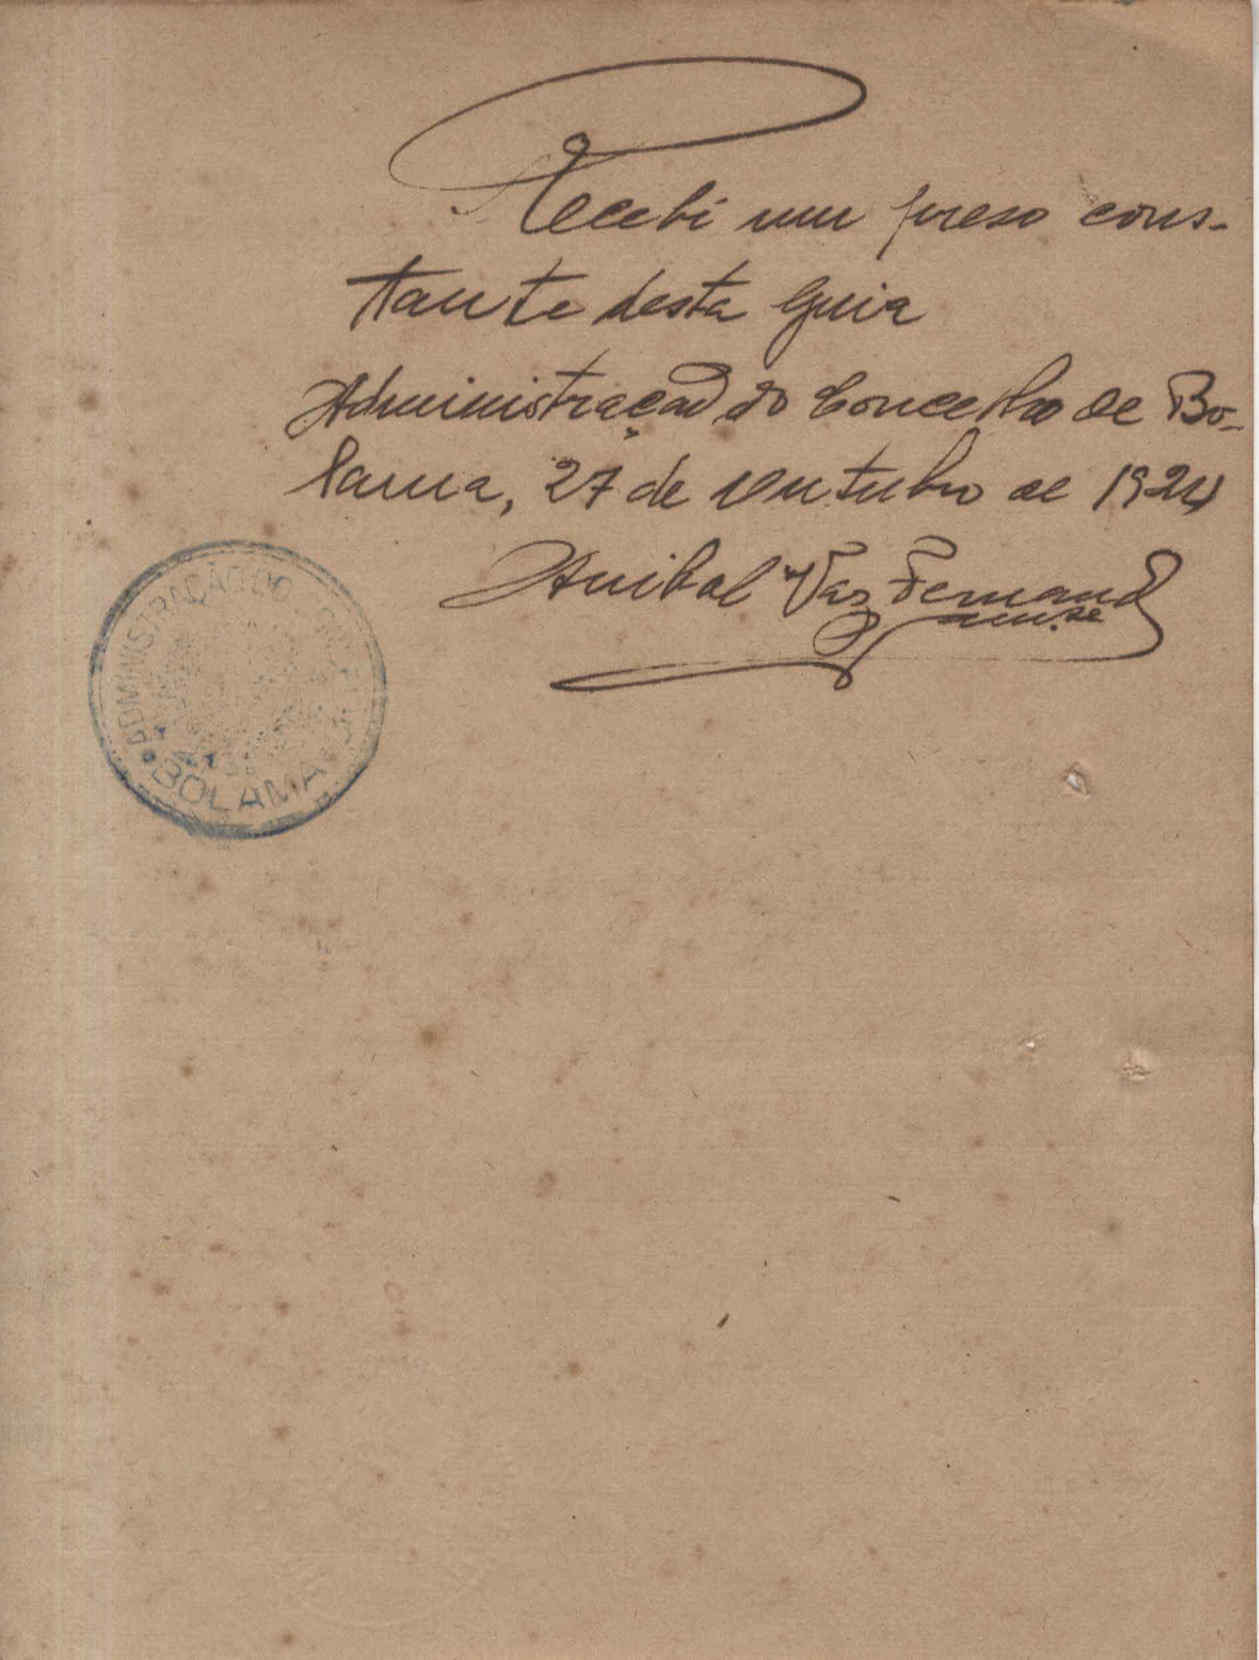 Recebi um preso cons-
tante desta Guia
Administração do Concelho de Bo-
lama, 27 de Outubro de 1924
Anibal Vaz Fernand
ADMINISTRAÇÃO DO
BOLAMA